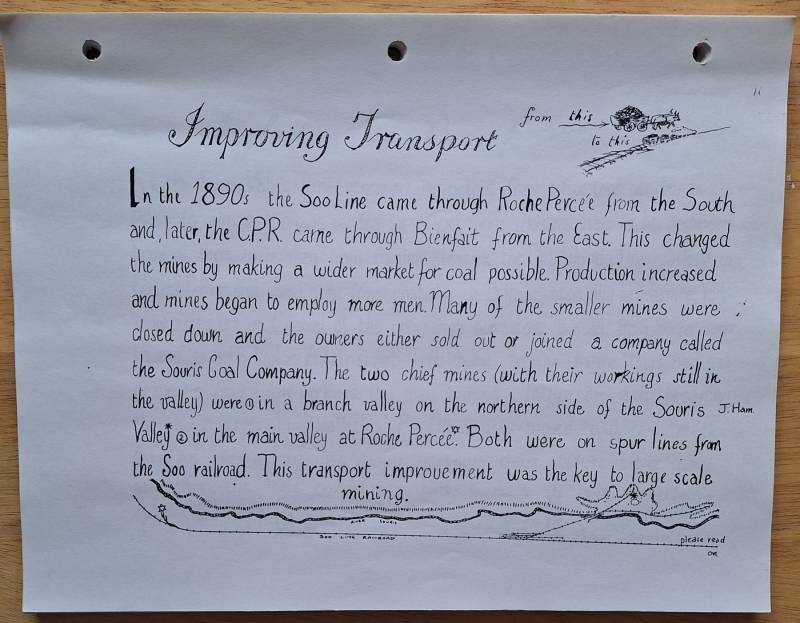 11
Improving Transport
from this
to this
In the 1890s the Soo Line came through Roche Percée from the South
and, later, the C.P.R. came through Bienfait from the East. This changed
the mines by making a wider market for coal possible. Production increased
and mines began to employ more men. Many of the smaller mines were
closed down and the owners either sold out or joined a company called
the Souris Coal Company. The two chief mines (with their workings still in
the valley) were ① in a branch valley on the northern side of the Souris J. Ham
Valley* ② in the main valley at Roche Percée*. Both were on spur lines from
the Soo railroad. This transport improvement was the key to large scale
mining.
RIVER SOURIS
SOO LINE RAILROAD
please read
on